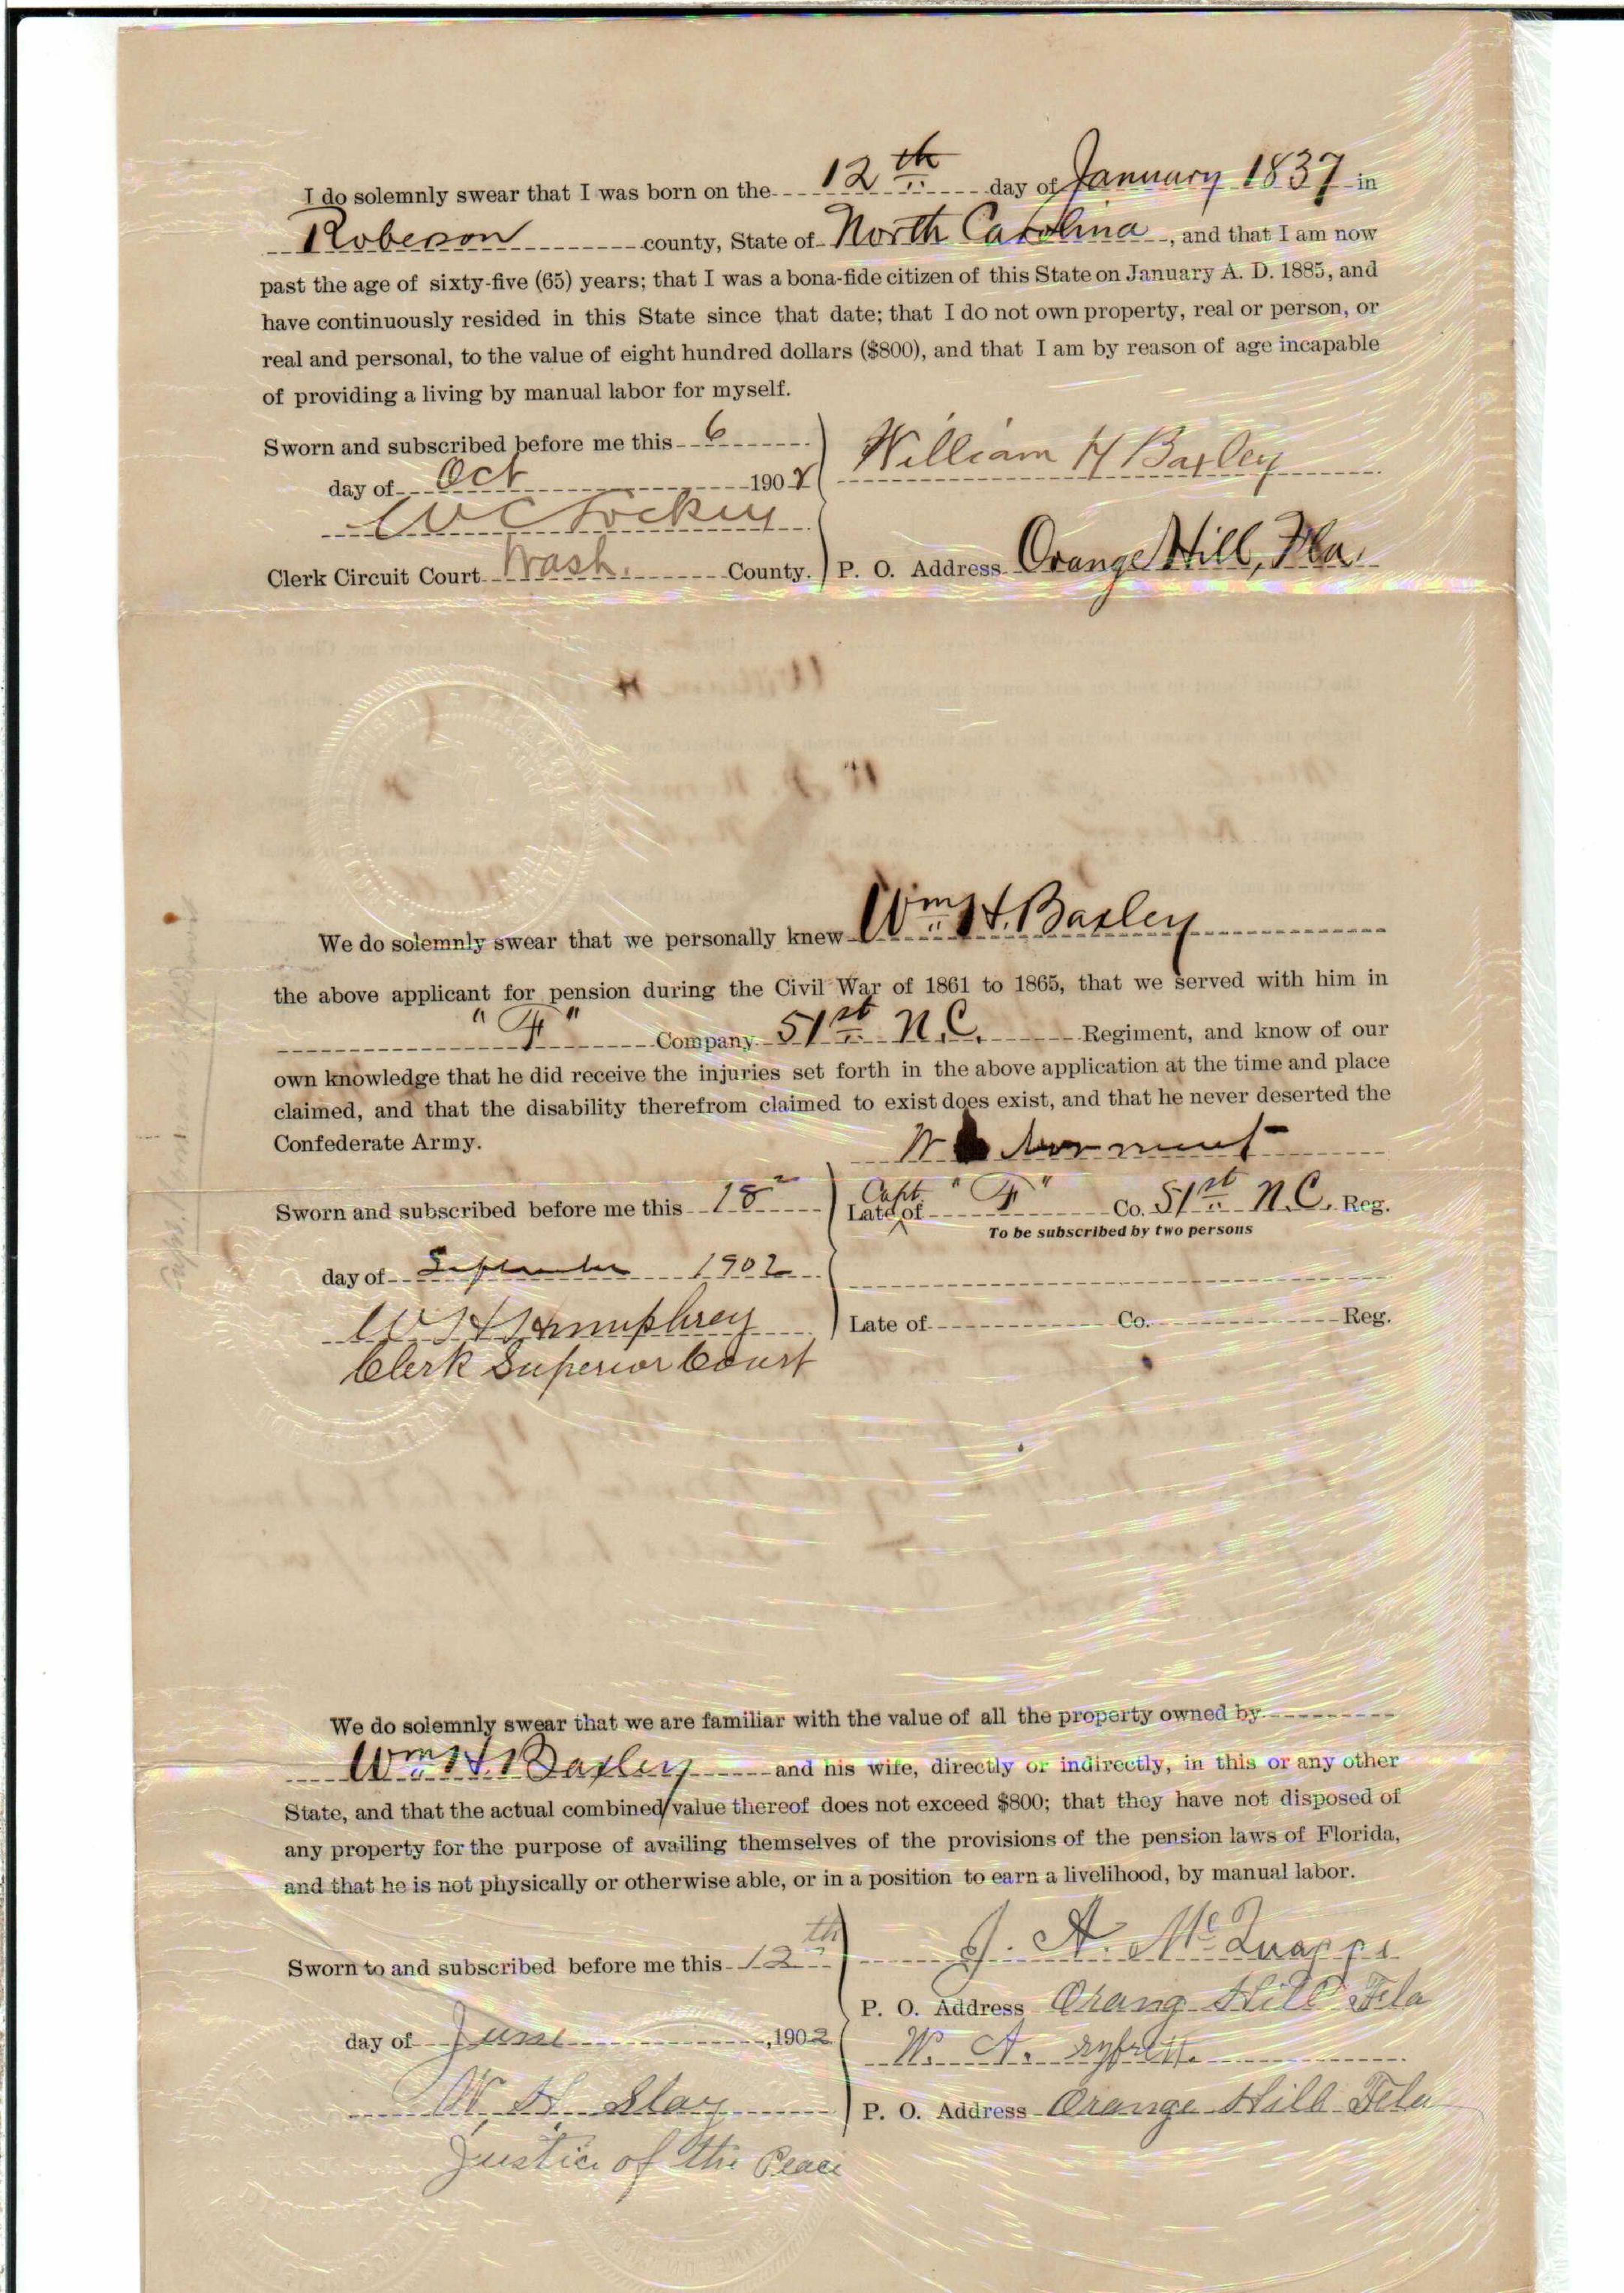 I do solemnly swear that I was born on the 12th day of January 1837 in
Roberson county, State of North Carolina, and that I am now
past the age of sixty-five (65) years; that I was a bona-fide citizen of this State on January A. D. 1885, and
have continuously resided in this State since that date; that I do not own property, real or person, or
real and personal, to the value of eight hundred dollars ($800), and that I am by reason of age incapable
of providing a living by manual labor for myself.
Sworn and subscribed before me this 6
day of Oct 1902
William H Baxley
W C Lockey
Clerk Circuit Court Wash. County.
P. O. Address Orange Hill, Fla.
We do solemnly swear that we personally knew Wm H. Baxley
the above applicant for pension during the Civil War of 1861 to 1865, that we served with him in
"F" Company 51st N.C. Regiment, and know of our
own knowledge that he did receive the injuries set forth in the above application at the time and place
claimed, and that the disability therefrom claimed to exist does exist, and that he never deserted the
Confederate Army.
W Norment
Sworn and subscribed before me this 18
Capt.
Late of "F" Co. 51st N.C. Reg.
To be subscribed by two persons
day of September 1902
W H Humphrey
Late of Co. Reg.
Clerk Superior Court
We do solemnly swear that we are familiar with the value of all the property owned by
Wm H. Baxley and his wife, directly or indirectly, in this or any other
State, and that the actual combined value thereof does not exceed $800; that they have not disposed of
any property for the purpose of availing themselves of the provisions of the pension laws of Florida,
and that he is not physically or otherwise able, or in a position to earn a livelihood, by manual labor.
Sworn to and subscribed before me this 12th
J. A.
P. O. Address Orang Hill Fla
day of June, 1902
W. A.
W. H. Slay
P. O. Address Orange Hill Fla
Justice of the Peace